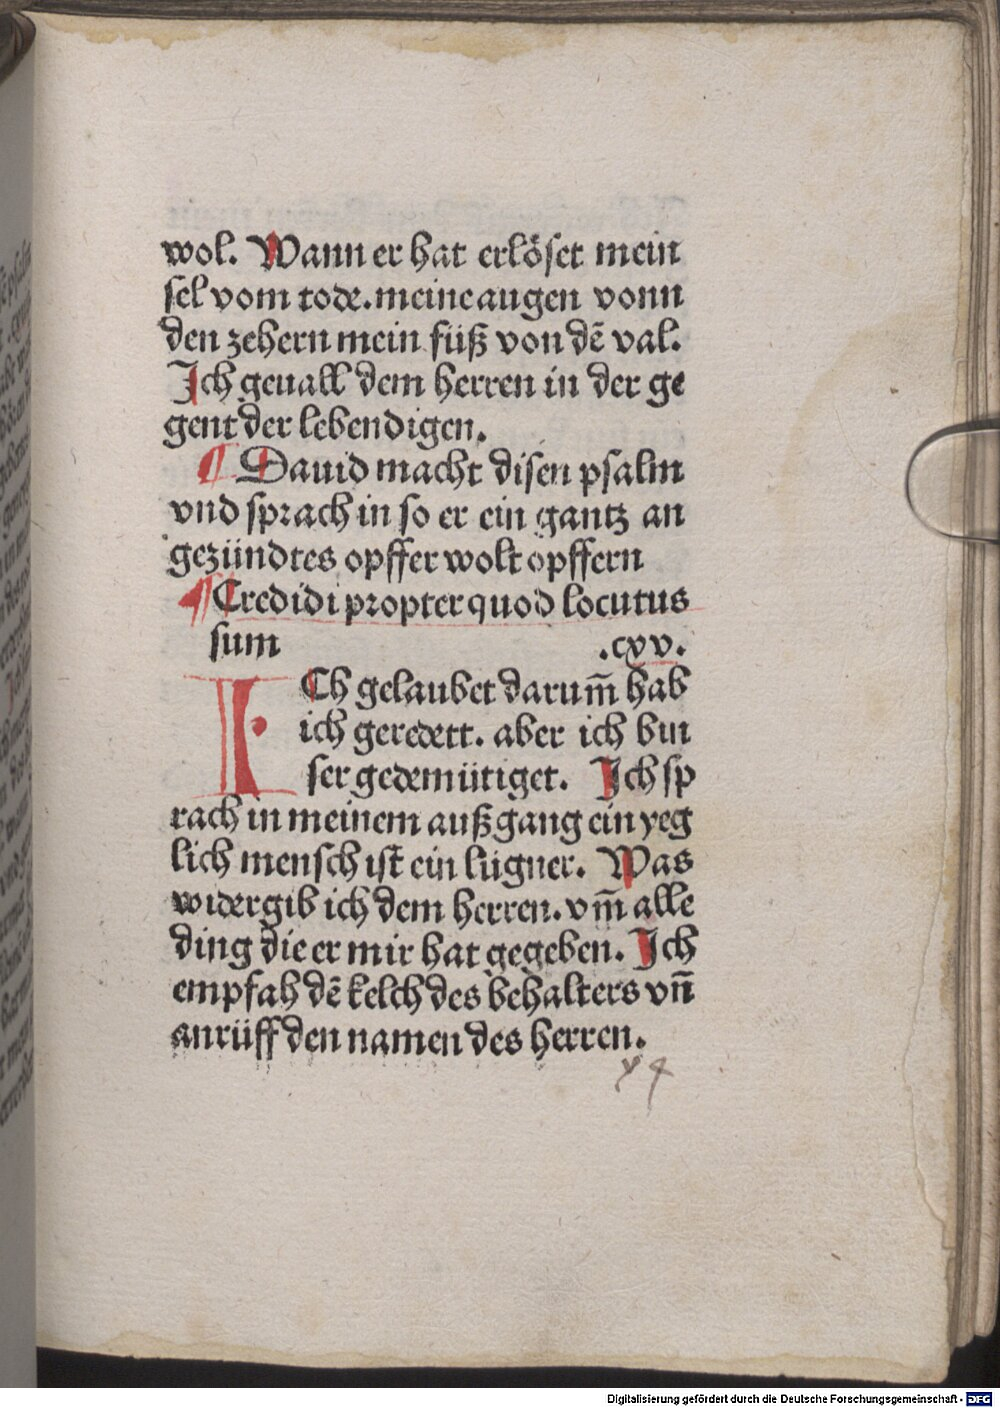 wol. Wann er hat erlöset mein
sel vom tode. meine augen vonn
den zehern mein füß von dē val.
Ich geuall dem herren in der ge
gent der lebendigen.
¶ Dauid macht disen psalm
vnd sprach in so er ein gantz an
gezündtes opffer wolt opffern
¶ Credidi propter quod locutus
sum .cxv.
ICh gelaubet darum̄ hab
ich geredett. aber ich bin
ser gedemütiget. Ich sp
rach in meinem außgang ein yeg
lich mensch ist ein lügner. Was
widergib ich dem herren. vm̄ alle
ding die er mir hat gegeben. Ich
empfah dē kelch des behalters vn̄
anrüff den namen des herren.
Digitalisierung gefördert durch die Deutsche Forschungsgemeinschaft - DFG